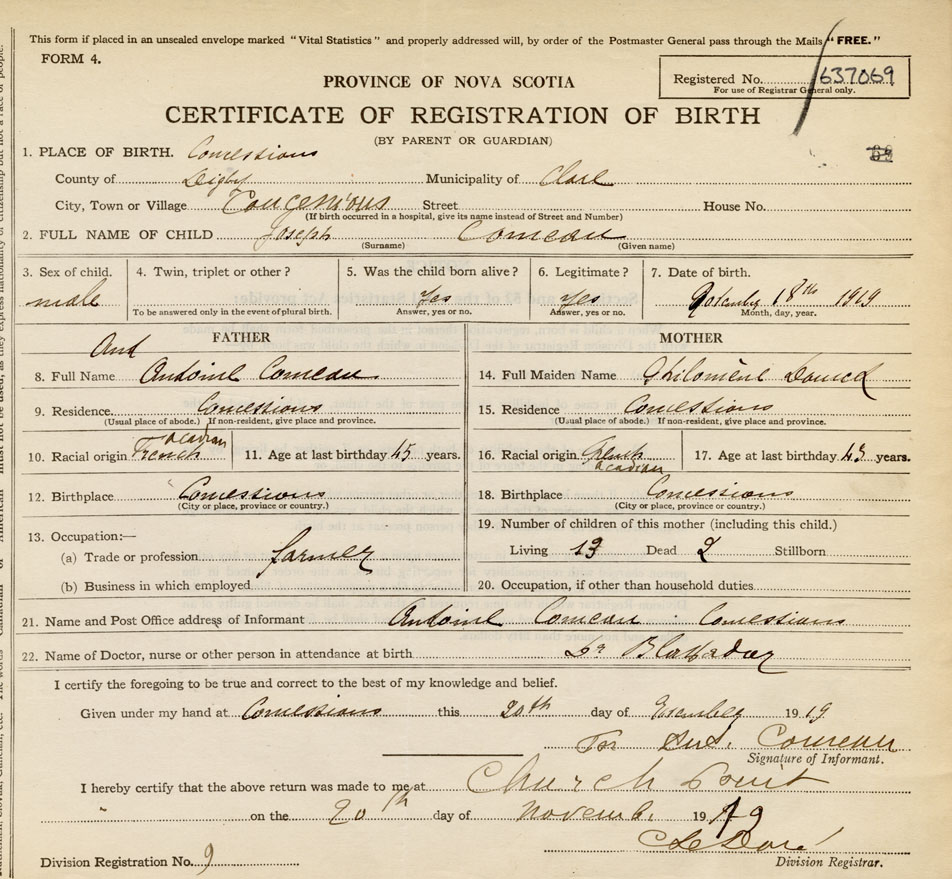 This form if placed in an unsealed envelope marked "Vital Statistics" and properly addressed will, by order of the Postmaster General pass through the Mails "FREE."
FORM 4.
PROVINCE OF NOVA SCOTIA
Registered No. 637069
For use of Registrar General only.
CERTIFICATE OF REGISTRATION OF BIRTH
(BY PARENT OR GUARDIAN)
1. PLACE OF BIRTH. Concessions
County of Digby Municipality of Clare
City, Town or Village Concessions Street House No.
(If birth occurred in a hospital, give its name instead of Street and Number)
2. FULL NAME OF CHILD Joseph Comeau
(Surname) (Given name)
3. Sex of child. 4. Twin, triplet or other? 5. Was the child born alive? 6. Legitimate? 7. Date of birth.
male Yes Yes 18th 1919
To be answered only in the event of plural birth. Answer, yes or no. Answer, yes or no. Month, day, year.
FATHER MOTHER
And
8. Full Name Andoine Comeau 14. Full Maiden Name Philomène
9. Residence Concessions 15. Residence Concessions
(Usual place of abode.) If non-resident, give place and province. (Usual place of abode.) If non-resident, give place and province.
10. Racial origin French Acadian 11. Age at last birthday 45 years. 16. Racial origin French Acadian 17. Age at last birthday 43 years.
12. Birthplace Concessions 18. Birthplace Concessions
(City or place, province or country.) (City or place, province or country.)
13. Occupation:— 19. Number of children of this mother (including this child.)
(a) Trade or profession farmer Living 13 Dead 2 Stillborn
(b) Business in which employed 20. Occupation, if other than household duties
21. Name and Post Office address of Informant Andoine Comeau Concessions
22. Name of Doctor, nurse or other person in attendance at birth Dr
I certify the foregoing to be true and correct to the best of my knowledge and belief.
Given under my hand at Concessions this 20th day of 1919
Comeau
Signature of Informant.
I hereby certify that the above return was made to me at Church Point
" on the 20th day of November 1919
Division Registration No. 9 Division Registrar.